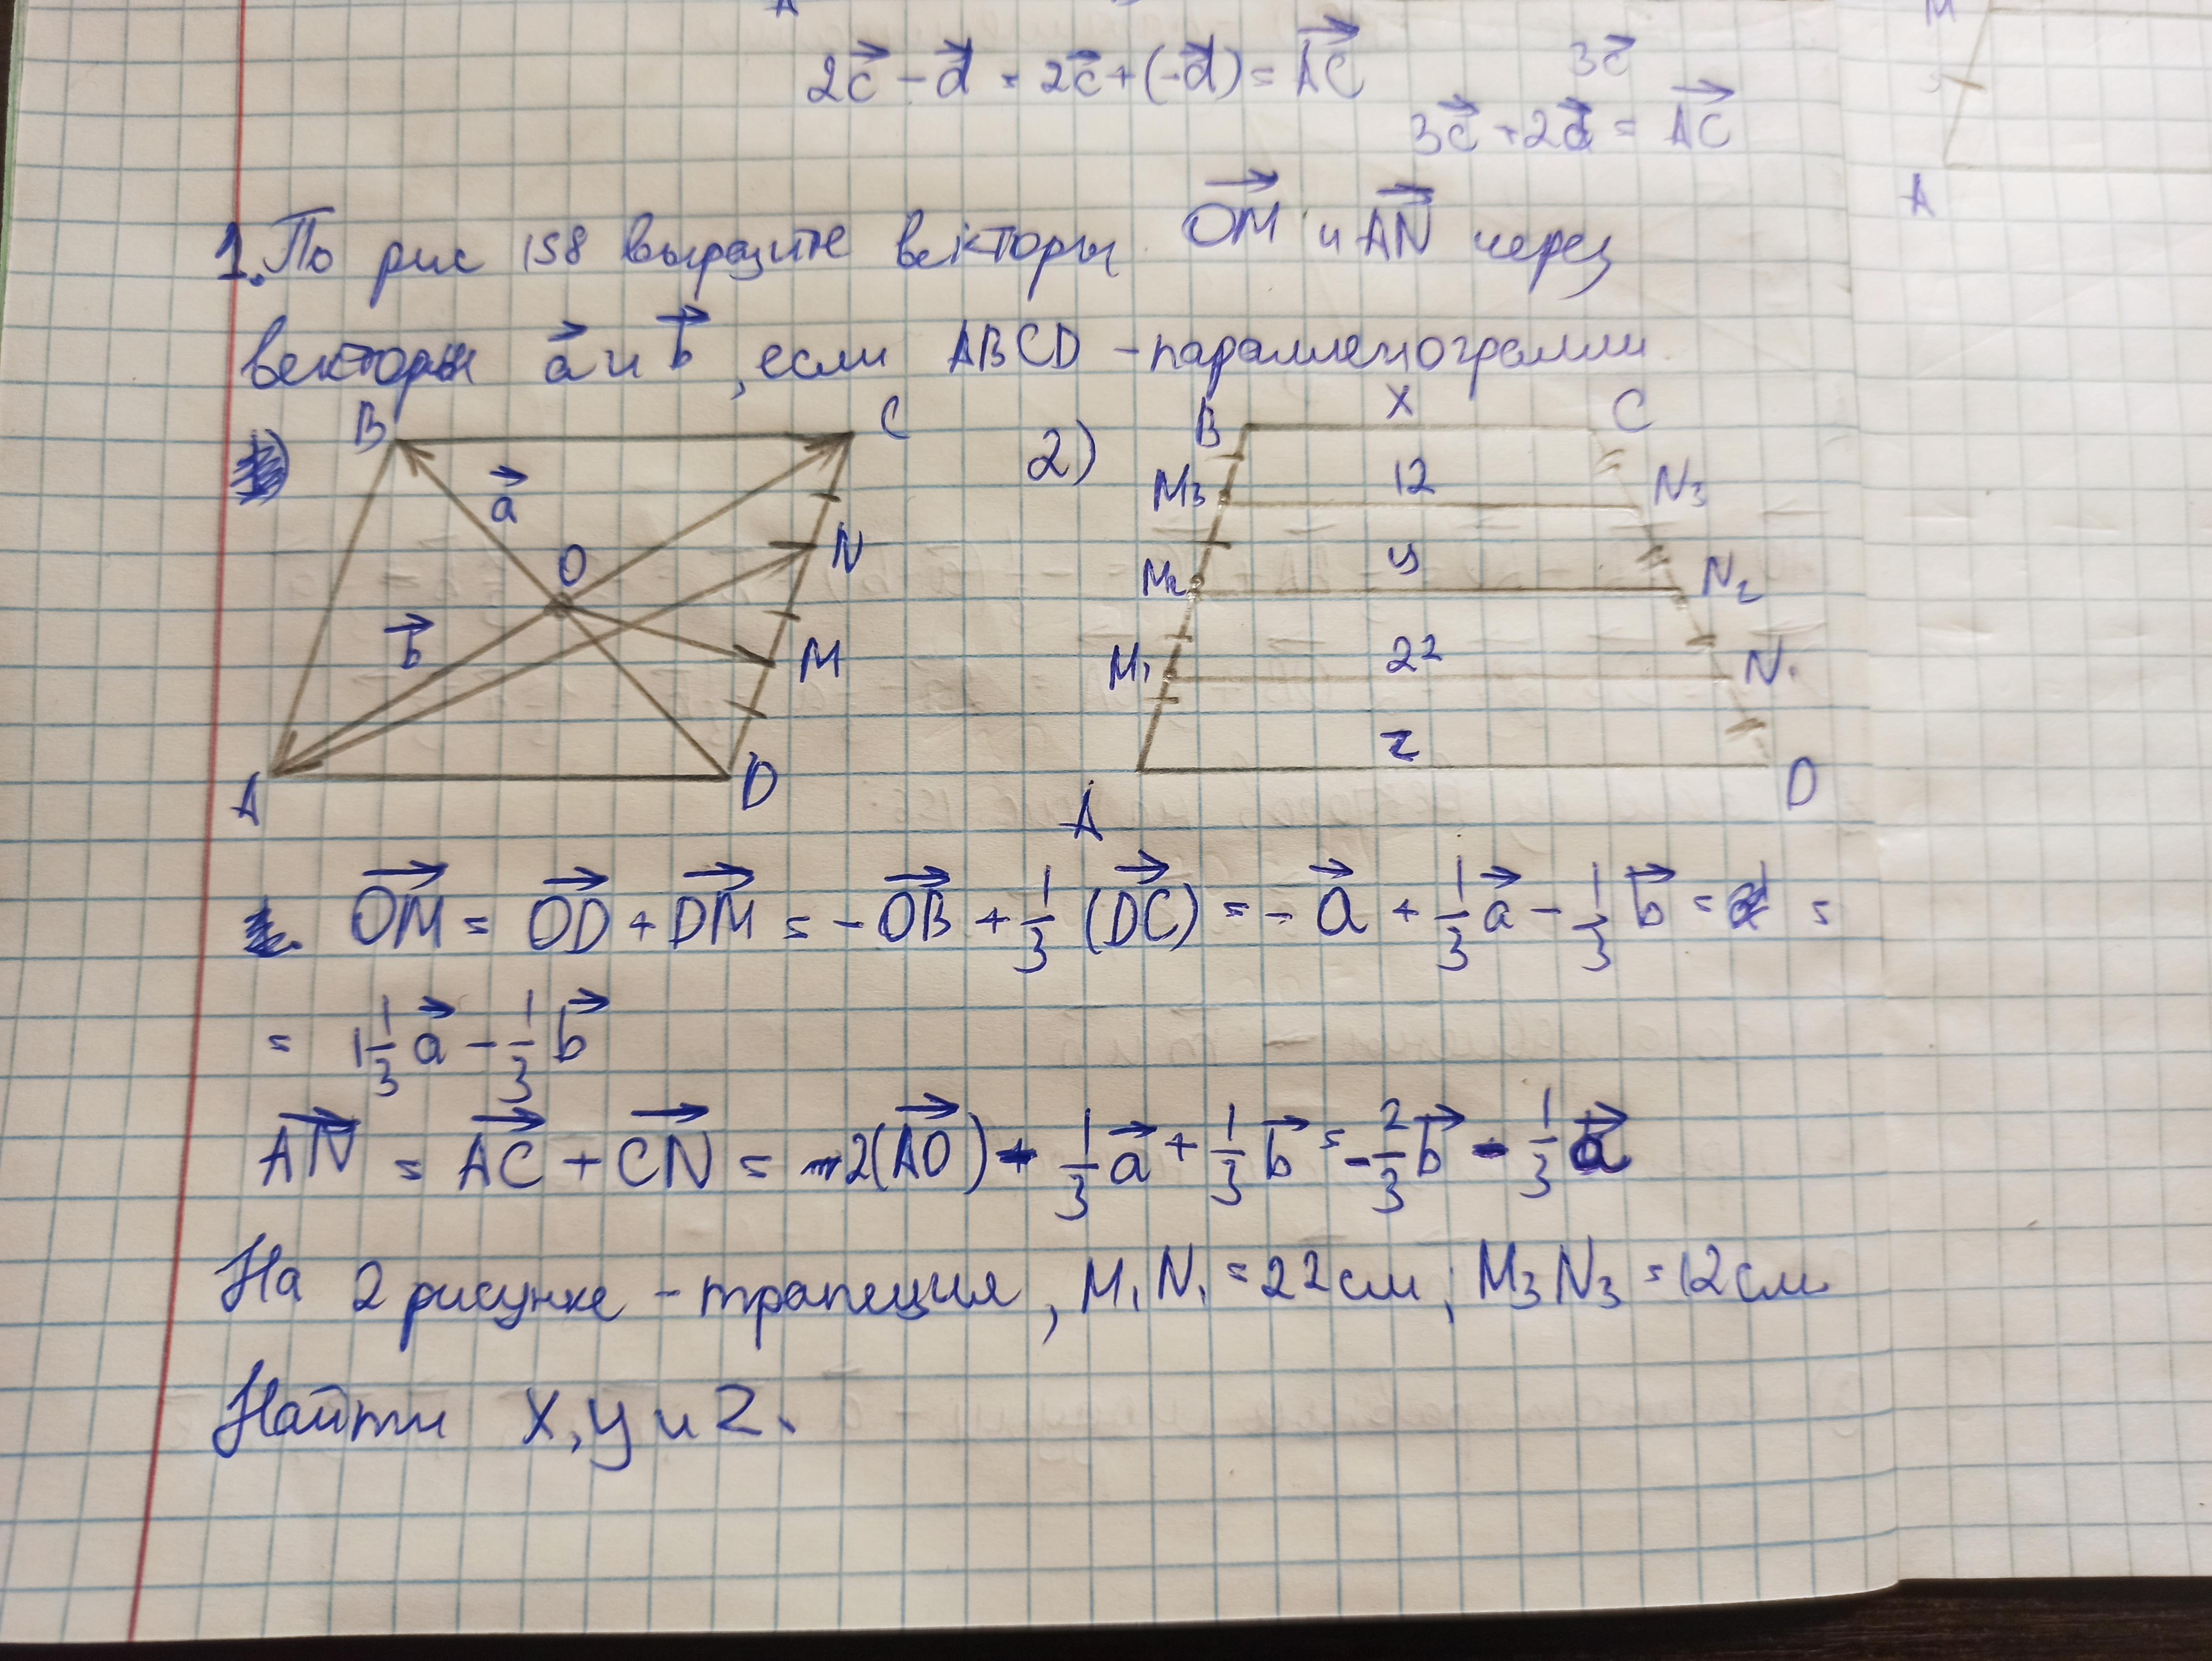 A
M
2c⃗ - d⃗ = 2c⃗ + (-d⃗) = AC⃗
3c⃗
3c⃗ + 2d⃗ = AC⃗
A
1. По рис 158 выразите векторы OM⃗ и AN⃗ через
векторы a⃗ и b⃗, если ABCD - параллелограмм
B C a⃗ O N b⃗ M A D
2) B X C
M₃ 12 N₃
M₂ y N₂
M₁ 22 N₁
z
A D
OM⃗ = OD⃗ + DM⃗ = -OB⃗ + 1/3 (DC⃗) = - a⃗ + 1/3 a⃗ - 1/3 b⃗ = =
= 1 1/3 a⃗ - 1/3 b⃗
AN⃗ = AC⃗ + CN⃗ = -2(AO⃗) - 1/3 a⃗ + 1/3 b⃗ = - 2/3 b⃗ - 1/3 a⃗
На 2 рисунке - трапеция, M₁N₁ = 22 см; M₃N₃ = 12 см
Найти X, y и z.